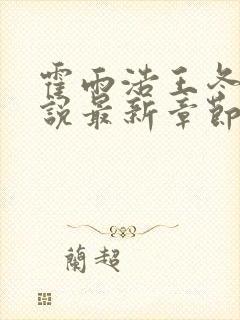 霍雨浩王冬
說最新章節
蘭超